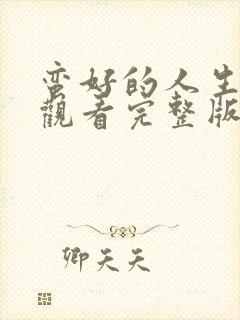 蛮好的人生
觀看完整版
卿天天